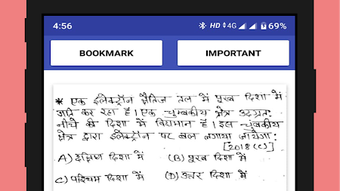 4:56 HD 4G 69%
BOOKMARK IMPORTANT
* एक इलेक्ट्रॉन क्षैतिज तल में पूरब दिशा में
गति कर रहा है। एक चुम्बकीय क्षेत्र उदग्रतः
नीचे की दिशा में विद्यमान है। इस चुंबकीय
क्षेत्र द्वारा इलेक्ट्रॉन पर बल लगाया जायेगा:
[2018 (C)]
A) दक्षिण दिशा में (B) पूरब दिशा में
C) पश्चिम दिशा में (D) उत्तर दिशा में